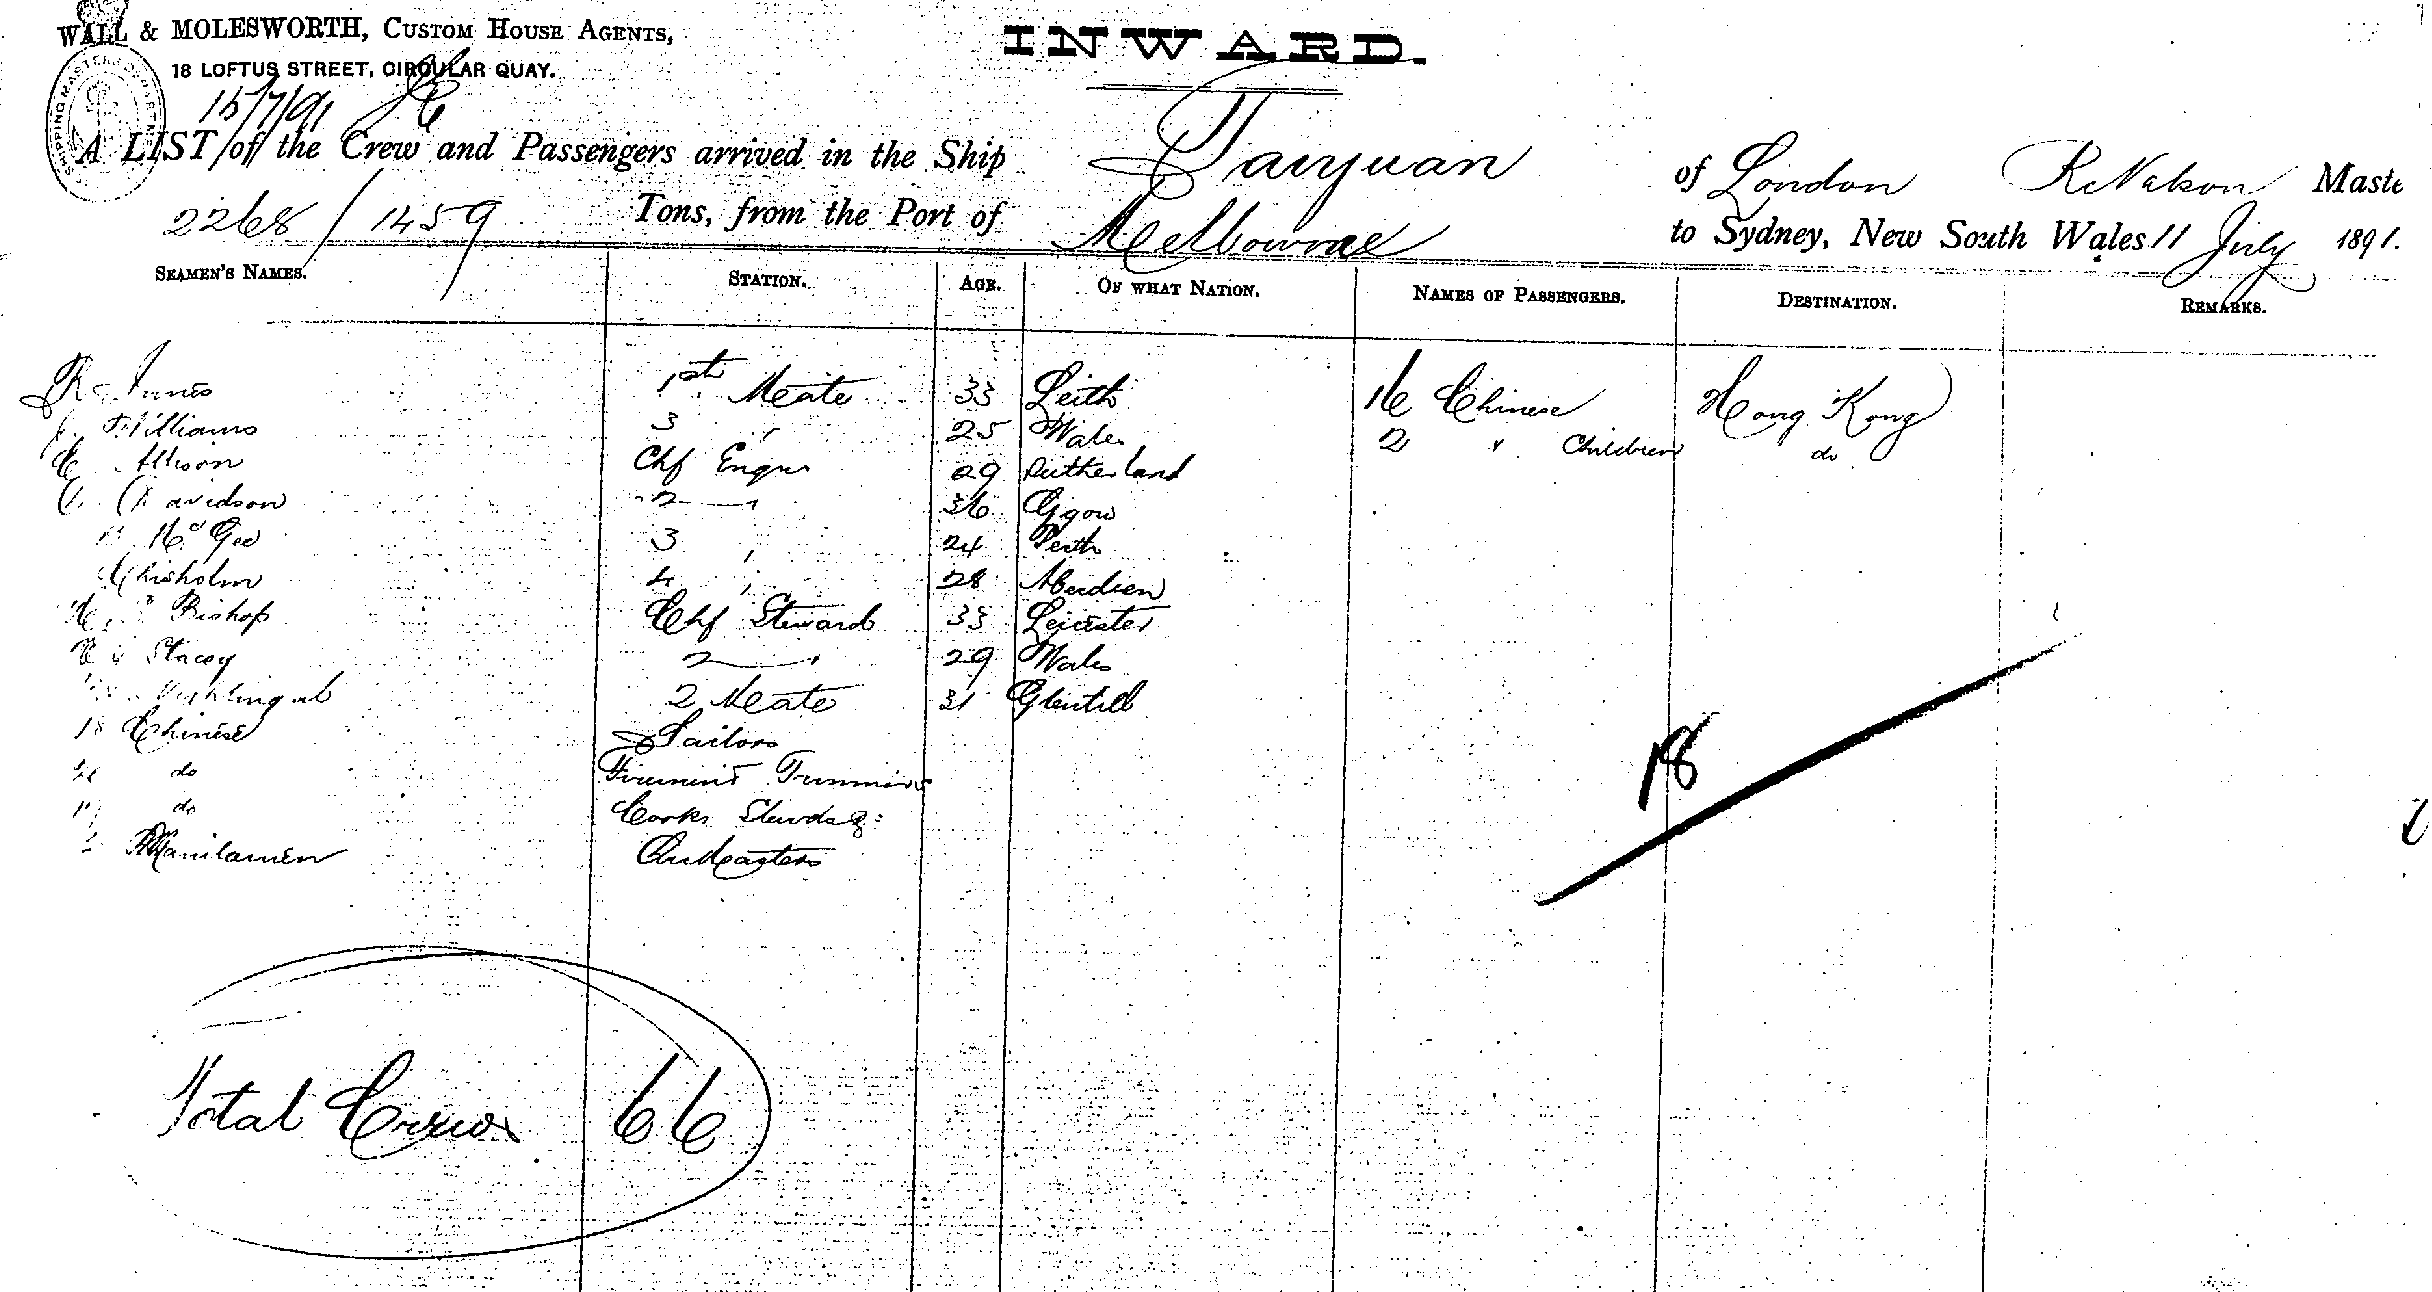 WALL & MOLESWORTH, CUSTOM HOUSE AGENTS,
18 LOFTUS STREET, CIRCULAR QUAY.
INWARD.
15/7/91
A LIST of the Crew and Passengers arrived in the Ship Taiyuan of London R. Nelson Maste
2268/1459 Tons, from the Port of Melbourne to Sydney, New South Wales 11 July 1891.
SEAMEN'S NAMES. STATION. AGE. OF WHAT NATION. NAMES OF PASSENGERS. DESTINATION. REMARKS.
R Innes 1st Mate 33 Leith 16 Chinese Hong Kong
J. Williams 3 " 25 Wales 2 " Children do
Allison Chf Engnr 29 Sutherland
Davidson 2 " 36 Ggow
Mc Geo 3 " 24 Perth
Chisholm 4 " 28 Aberdeen
Bishop Chf Steward 33 Leicester
Stacey 2 " 29 Wales
2 Mate 31
18 Chinese Sailors
do Firemens Trimmers
do Cooks Stewds &c
Manilamen
18
Total Crew 66